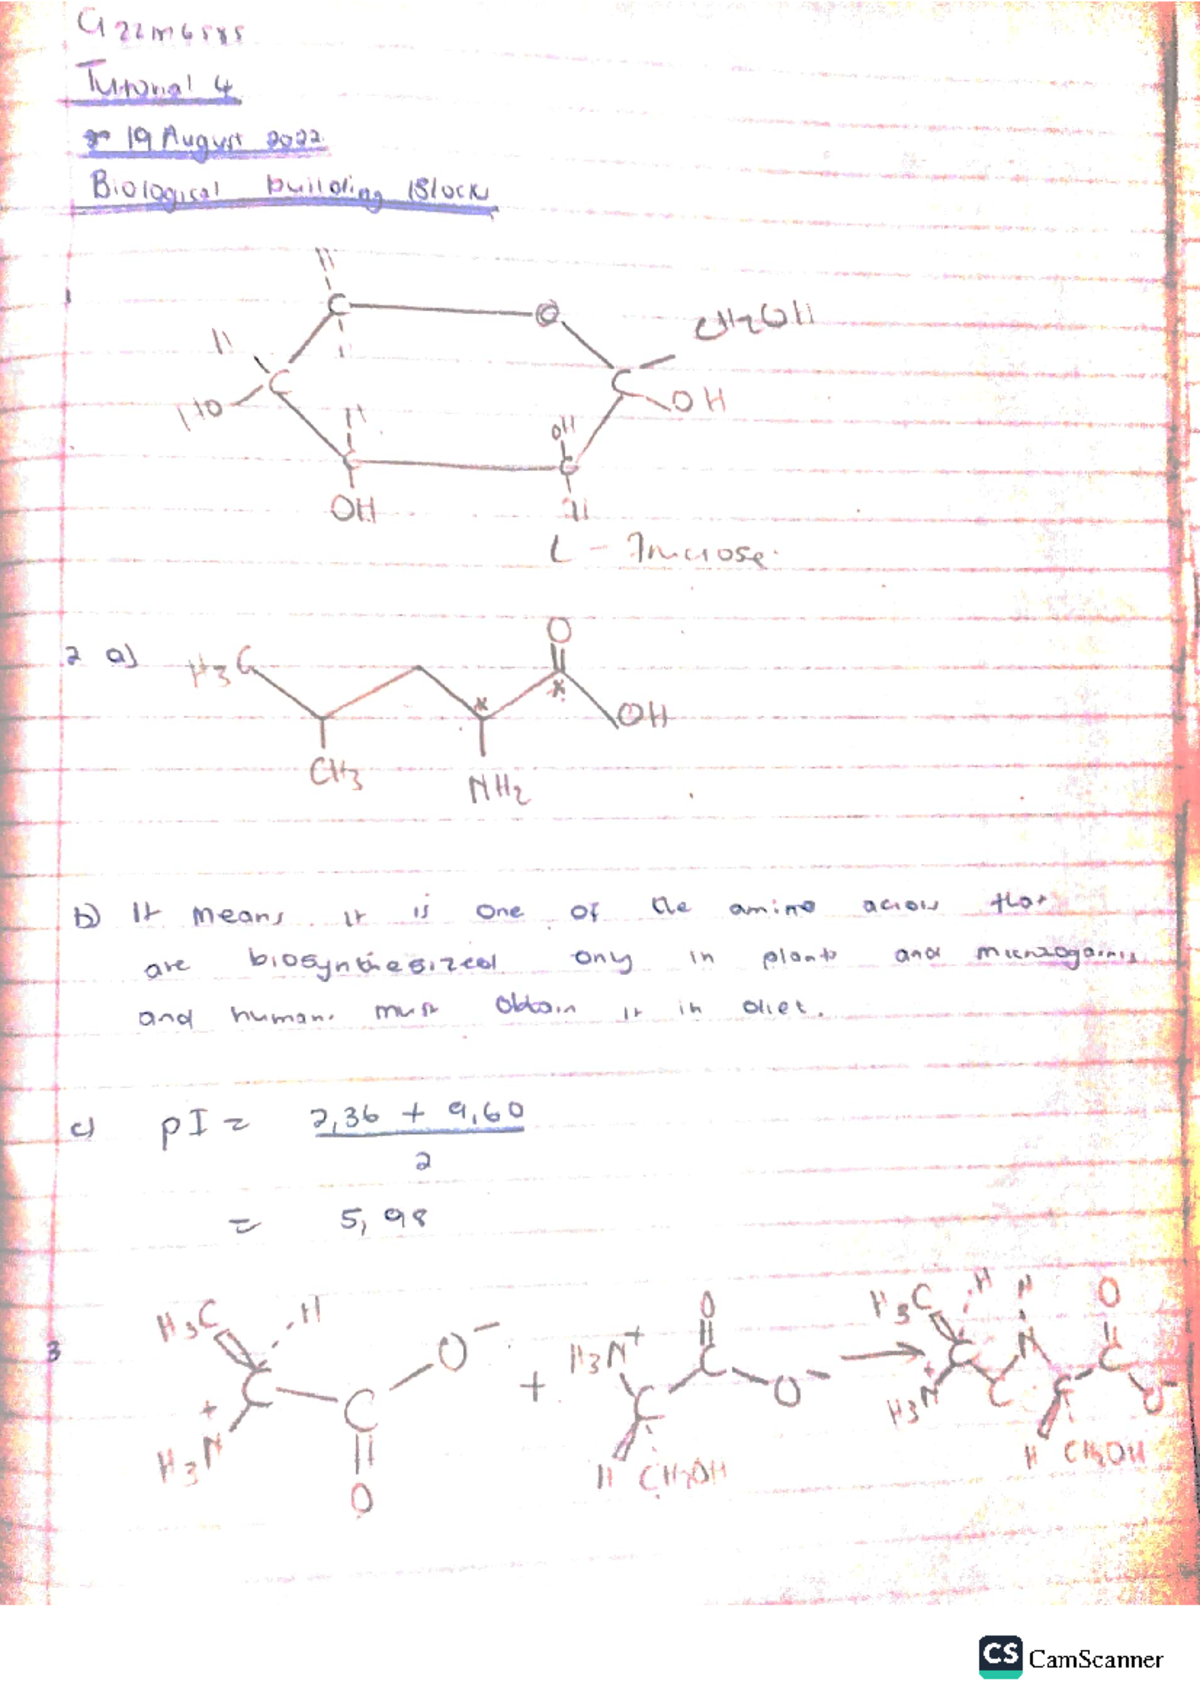 G22M6585
Tutorial 4
19 August 2022
Biological building Block
1
H
C O CH2OH
H C C
HO H OH OH
C C
H
OH H
L - Fructose.
2 a) H3C O
* * OH
CH3 NH2
b) It means it is one of the amino acids that
are biosynthesized only in plants and
and human. must obtain it in diet.
c) pI = 2,36 + 9,60
2
= 5,98
3 H3C H O- H3N+ O H3C H H O
C C + C O- → C N C
+ H3N O C H3N C C O-
H CH2OH H CH2OH
CS CamScanner